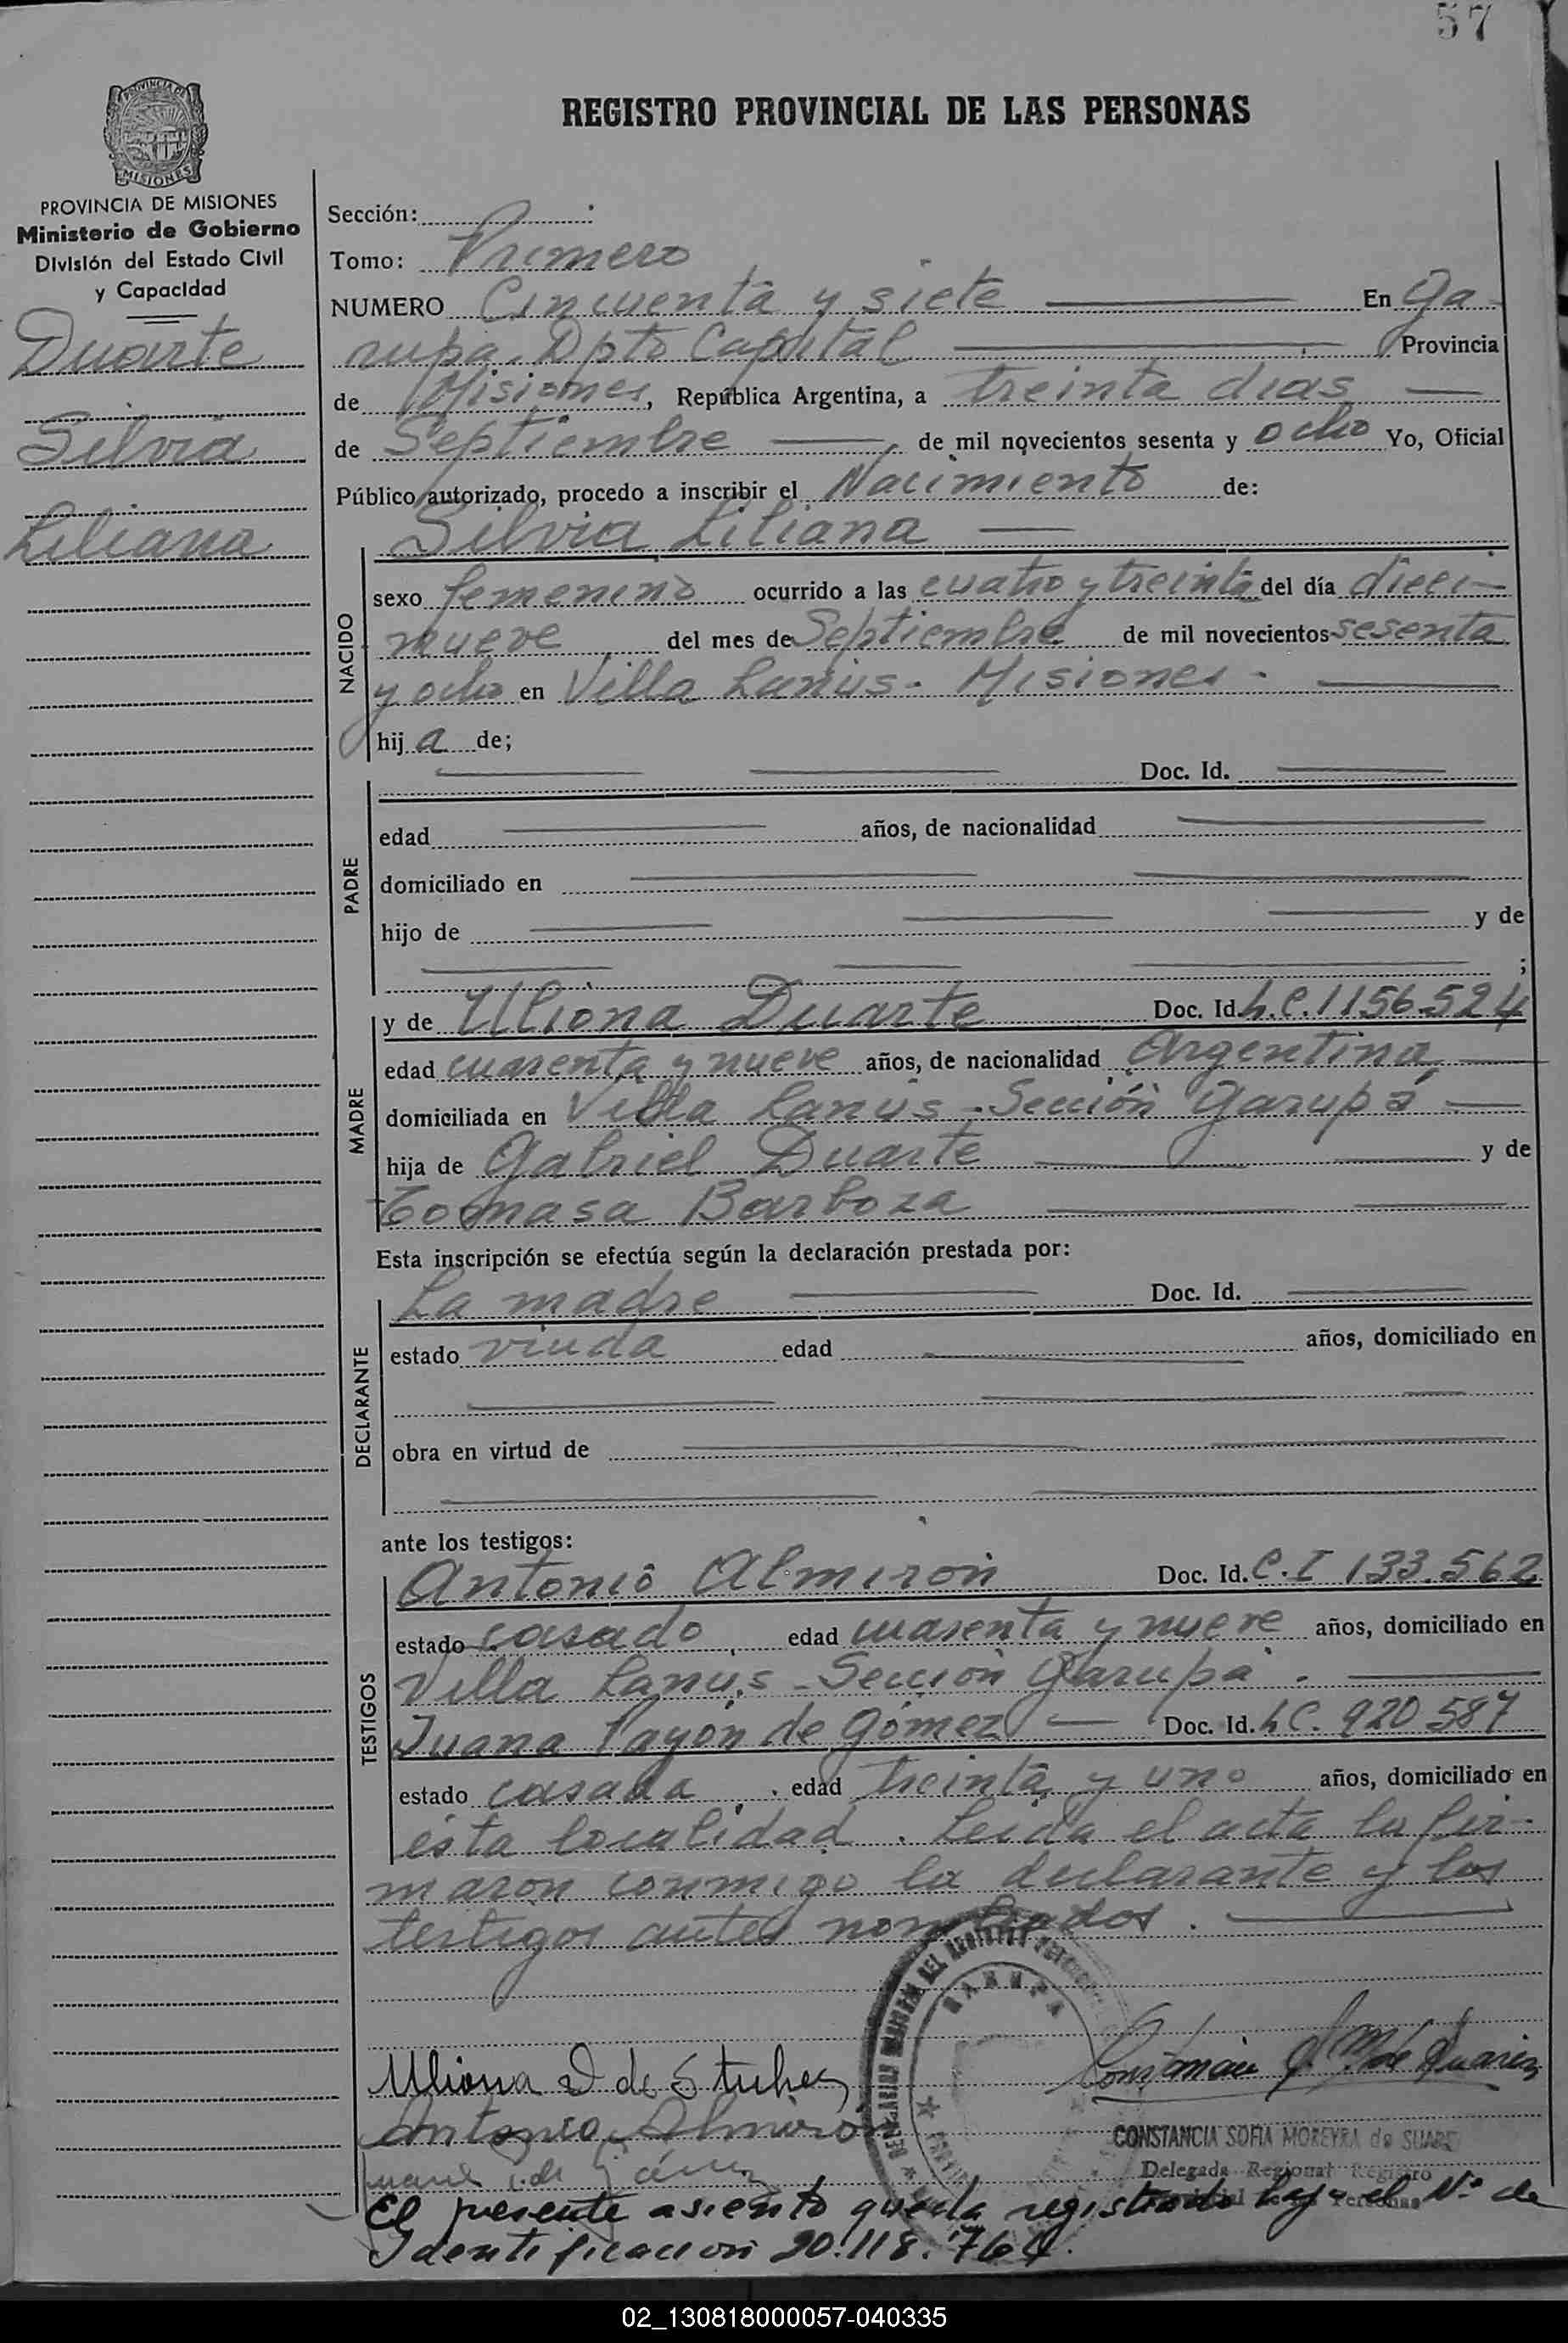 57
REGISTRO PROVINCIAL DE LAS PERSONAS
MISIONES
PROVINCIA DE MISIONES
Ministerio de Gobierno
División del Estado Civil
y Capacidad
Duarte
Silvia
Liliana
Sección:
Tomo: Primero
NUMERO Cincuenta y siete En Ga
rupa. Dpto Capital Provincia
de Misiones, República Argentina, a treinta dias
de Septiembre de mil novecientos sesenta y ocho Yo, Oficial
Público autorizado, procedo a inscribir el Nacimiento de:
Silvia Liliana
NACIDO
sexo femenino ocurrido a las cuatro y treinta del día dieci-
nueve del mes de Septiembre de mil novecientos sesenta
y ocho en Villa Lanús. Misiones.
hij a de;
Doc. Id.
PADRE
edad años, de nacionalidad
domiciliado en
hijo de y de
;
MADRE
y de Uliona Duarte Doc. Id. L.C. 1156.524
edad cuarenta y nueve años, de nacionalidad Argentina
domiciliada en Villa Lanús. Sección Garupá
hija de Gabriel Duarte y de
Tomasa Barboza
Esta inscripción se efectúa según la declaración prestada por:
DECLARANTE
La madre Doc. Id.
estado viuda edad años, domiciliado en
obra en virtud de
ante los testigos:
TESTIGOS
Antonio Almirón Doc. Id. C.I 133.562
estado casado edad cuarenta y nueve años, domiciliado en
Villa Lanús - Sección Garupá.
Juana Payón de Gómez Doc. Id. L.C. 920 587
estado casada. edad treinta y uno años, domiciliado en
ésta localidad. Leída el acta la fir-
maron conmigo la declarante y los
testigos antes nombrados.
GARUPA
Uliona D de
Antonio Almirón
CONSTANCIA SOFIA MOREYRA de SUARE
Delegada Regional Registro
El presente asiento queda registrado bajo el Nº de
Identificacion 20.118.764.
02_130818000057-040335